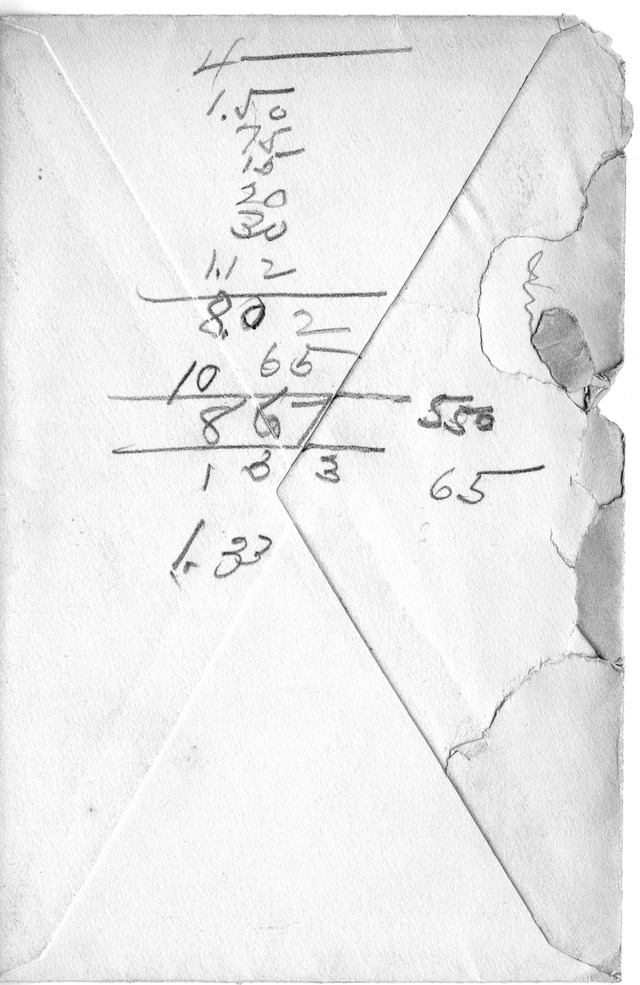 4—
1.50
75
15
20
30
1.12
8.0 2
65
10
8 67 550
1 3 3
65
1.33